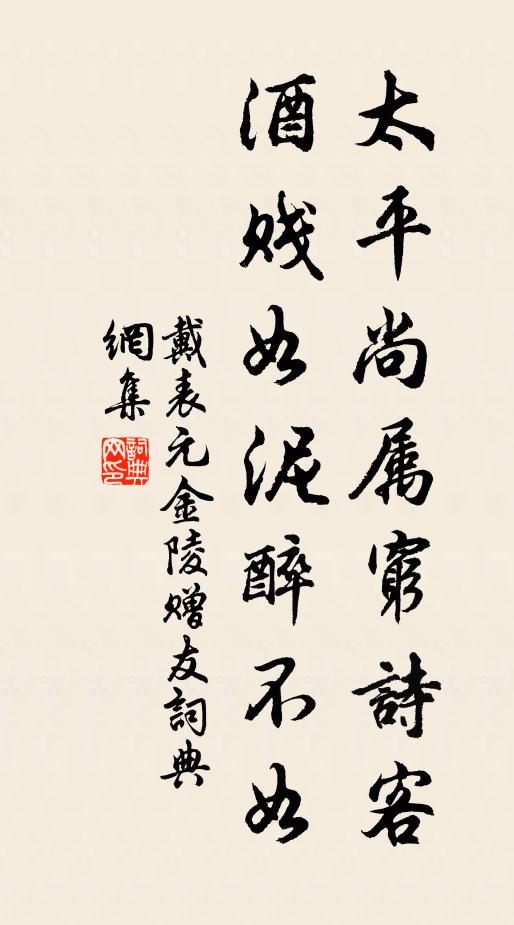 太平尚属窮詩客
酒賤如泥醉不如
戴表元金陵赠友詞典
網集
詞典網印